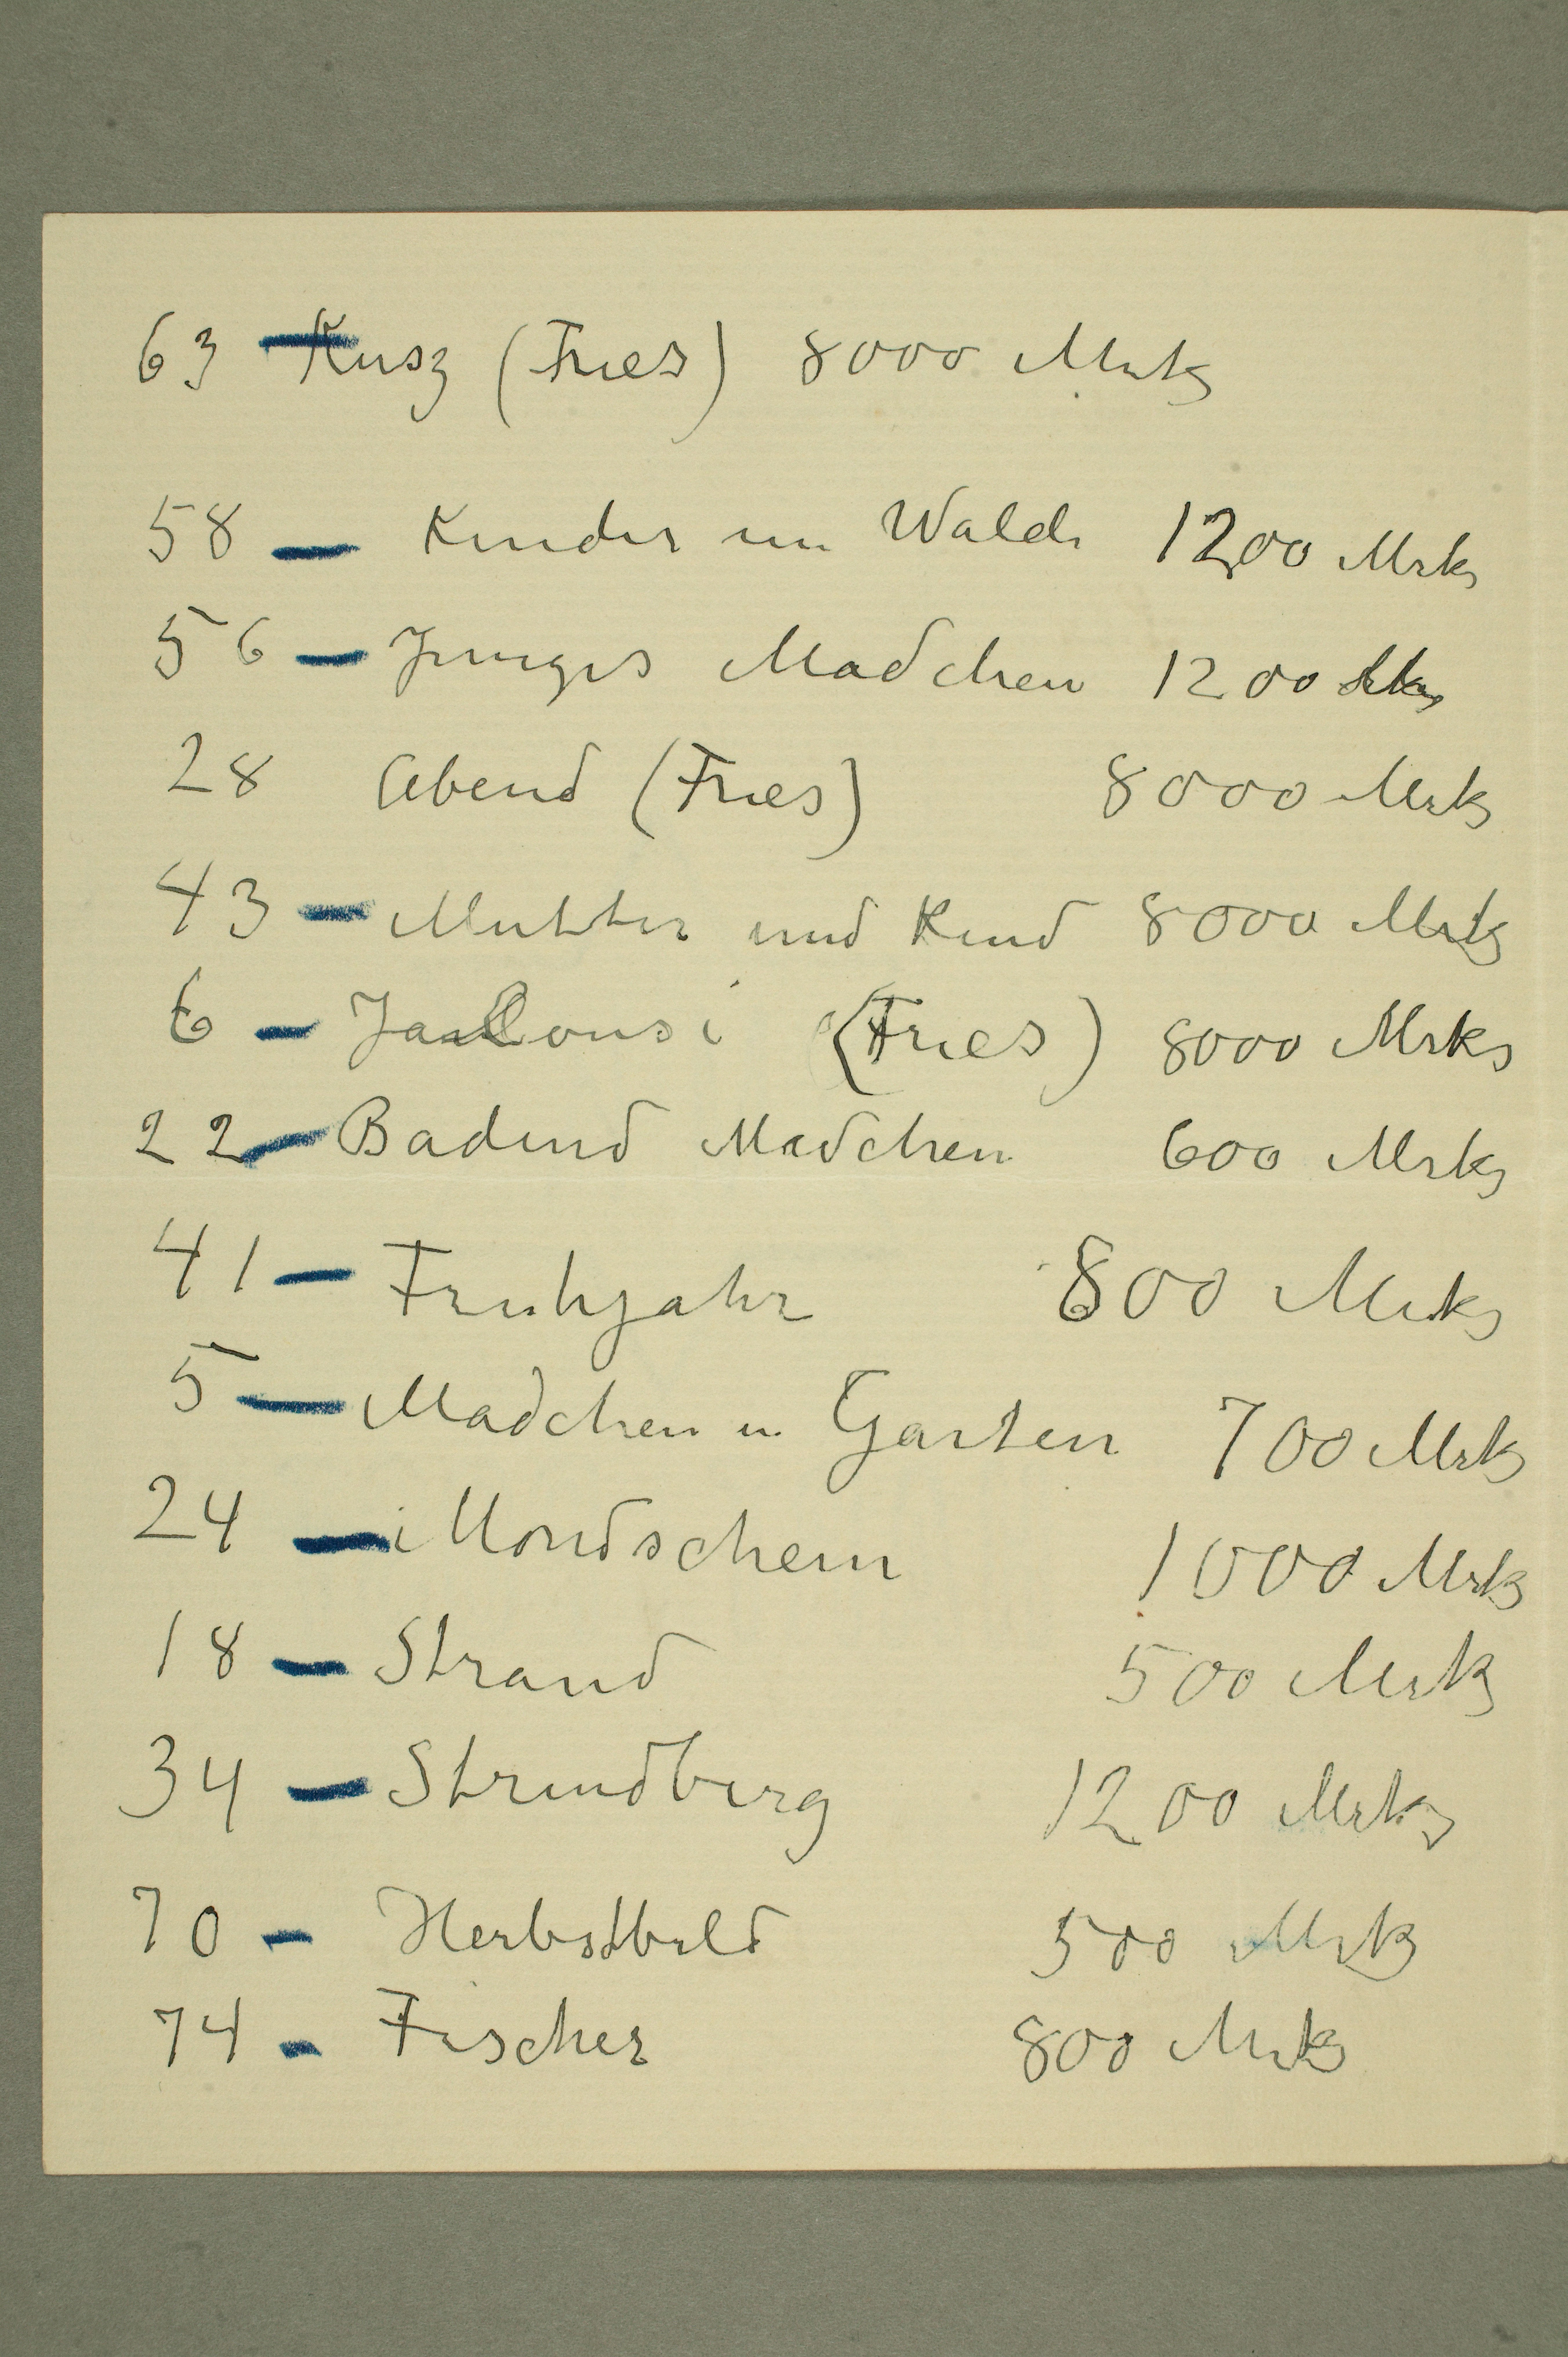 63 – Kusz (Fries) 8000 Mrks
58 – Kinder im Walde 1200 Mrks
56 – Junges Madchen 1200 Mks
28 Abend (Fries) 8000 Mrks
43 – Mutter und Kind 8000 Mrks
6 – Jalousi (Fries) 8000 Mrks
22 – Badend Madchen 600 Mrks
41 – Fruhjahr 800 Mrks
5 – Madchen in Garten 700 Mrks
24 – Mondschein 1000 Mrks
18 – Strand 500 Mrks
34 – Strindberg 1200 Mrks
70 – Herbstbild 500 Mrks
74 – Fischer 800 Mrks